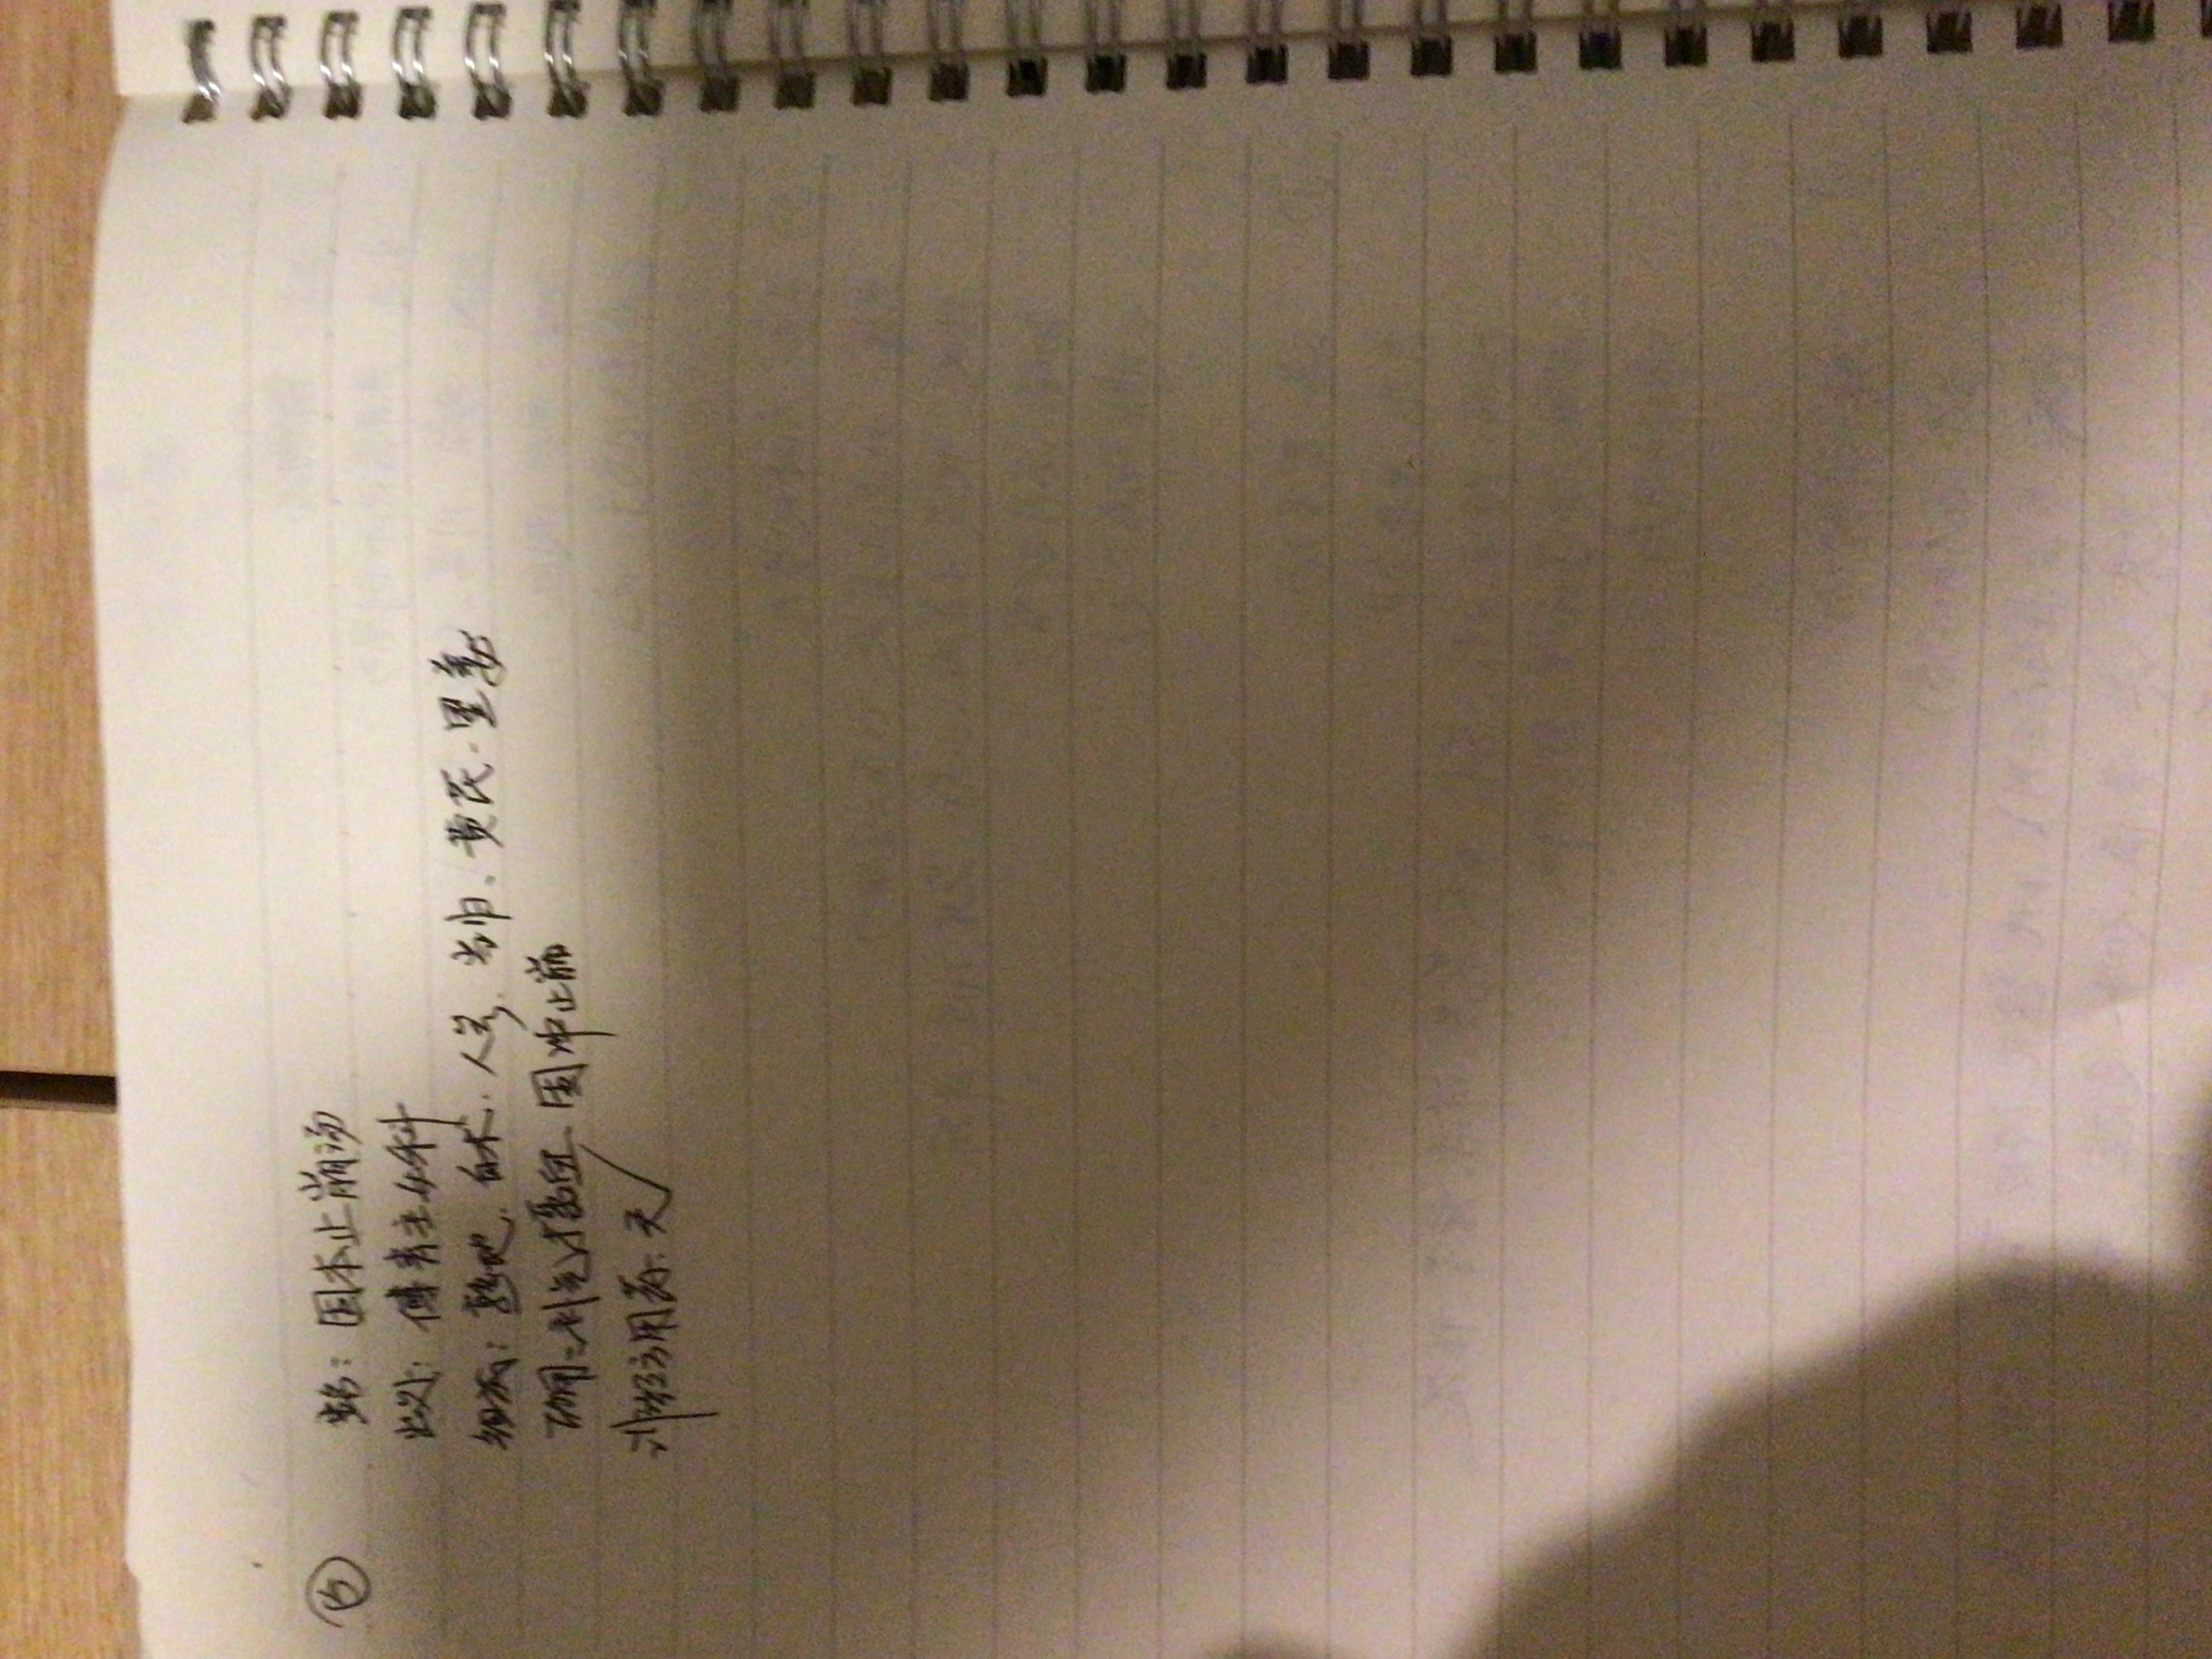 ⑮ 方名：固本止崩汤
出处：傅青主女科
组成：熟地、白术、人参、当归、黄芪、黑姜
功用：补气摄血、固冲止崩
冲任方用 天